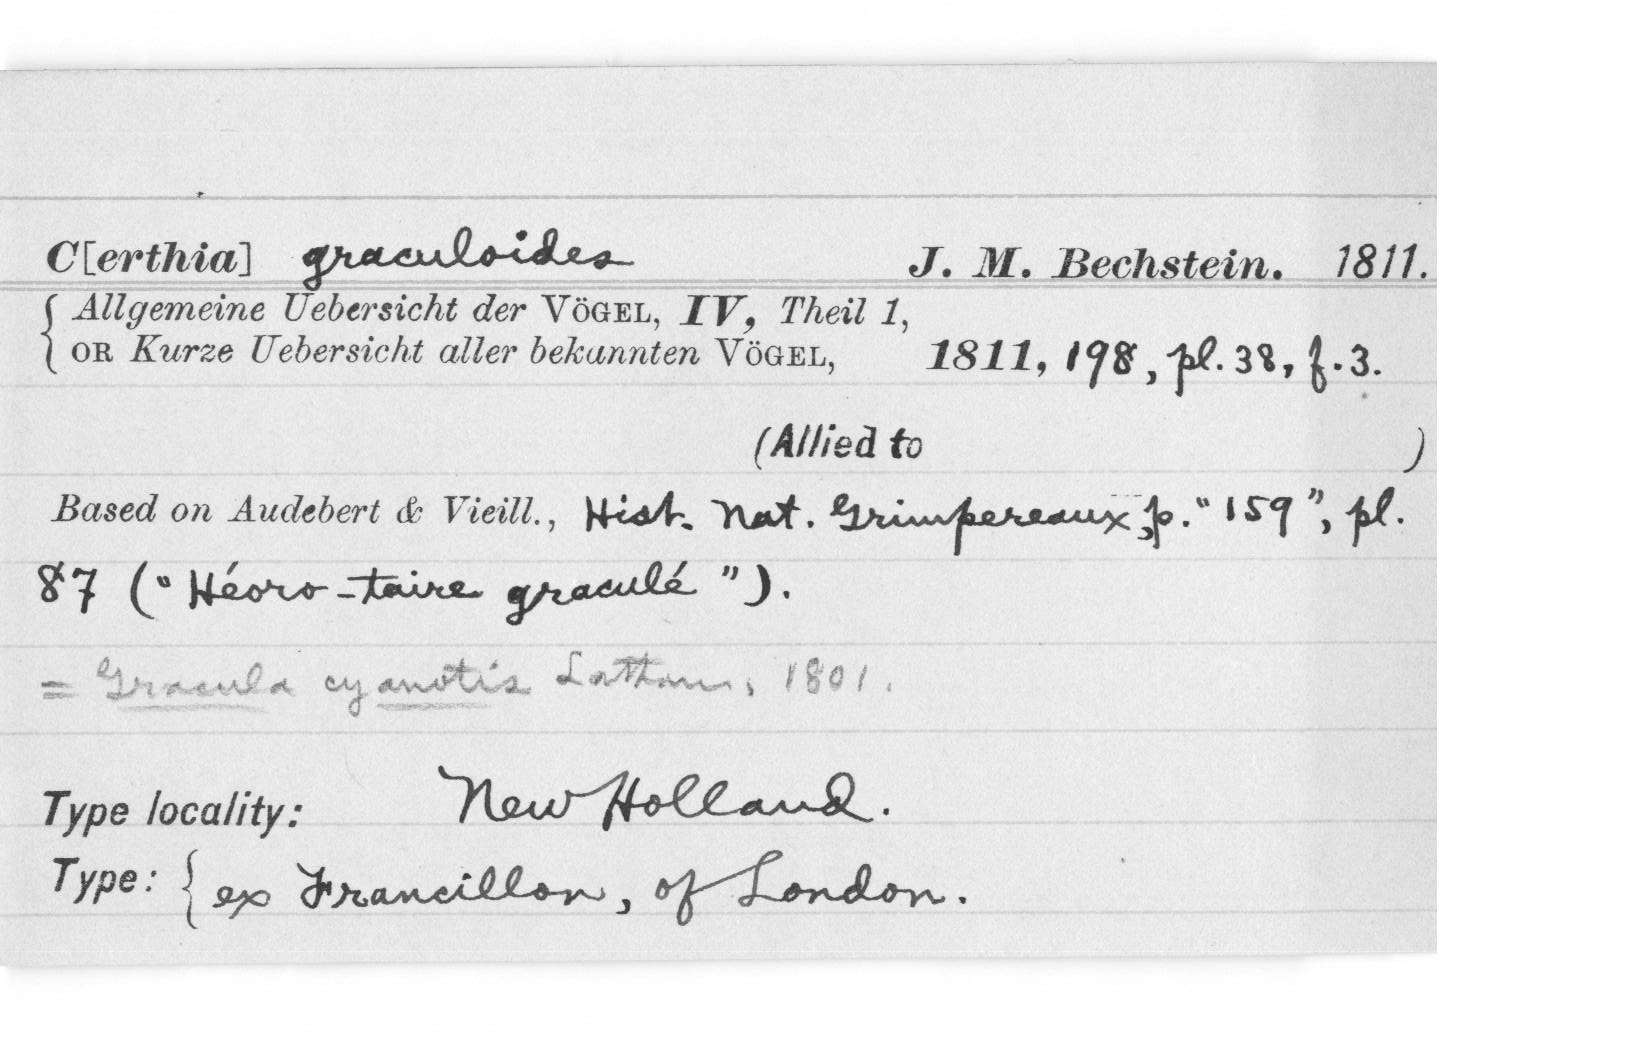 C[erthia] graculoides J. M. Bechstein. 1811.
{ Allgemeine Uebersicht der VÖGEL, IV, Theil 1,
{ OR Kurze Uebersicht aller bekannten VÖGEL, 1811, 198, pl. 38, f. 3.
(Allied to )
Based on Audebert & Vieill., Hist. Nat. Grimpereaux, p. "159", pl.
87 ("Héoro-taire graculé").
= Gracula cyanotis Latham, 1801.
Type locality: New Holland.
Type: { ex Francillon, of London.